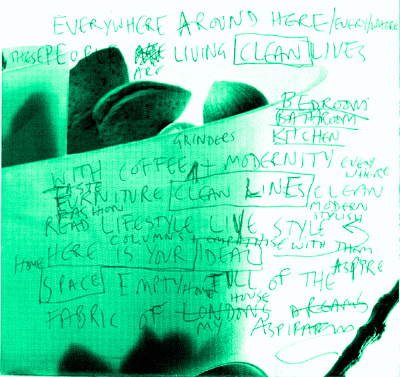 EVERYWHERE AROUND HERE/EVERY/WHERE
THESE PEOPLE ARE LIVING CLEAN LIVES
ARE
BEDROOM
BATHROOM
KITCHEN
GRINDERS
WITH COFFEE + MODERNITY EVERY
WHERE
TASTE
FURNITURE CLEAN LINES/CLEAN
FASHION
MODERN
STYLISH
READ LIFESTYLE LIVE STYLE
COLUMNS + EMPATHISE WITH THEM
HOME HERE IS YOUR IDEAL
ASPIRE
SPACE EMPTY HOME FULL OF THE
HOUSE
FABRIC OF LONDONS DREAMS
MY